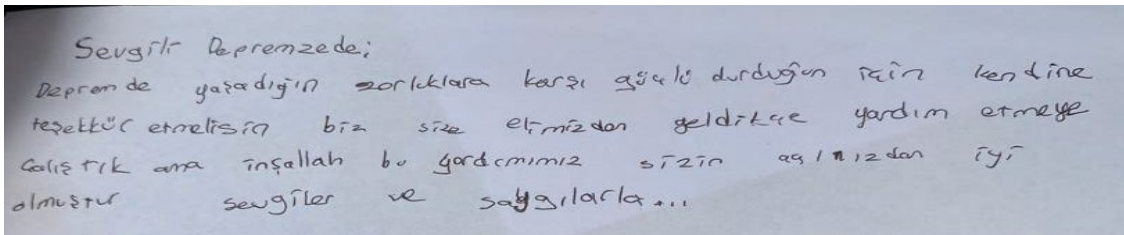 Sevgili Depremzede;
Depremde yaşadığın zorluklara karşı güçlü durduğun için kendine
teşekkür etmelisin biz size elimizden geldikçe yardım etmeye
çalıştık ama inşallah bu yardımımız sizin açınızdan iyi
olmuştur sevgiler ve saygılarla...